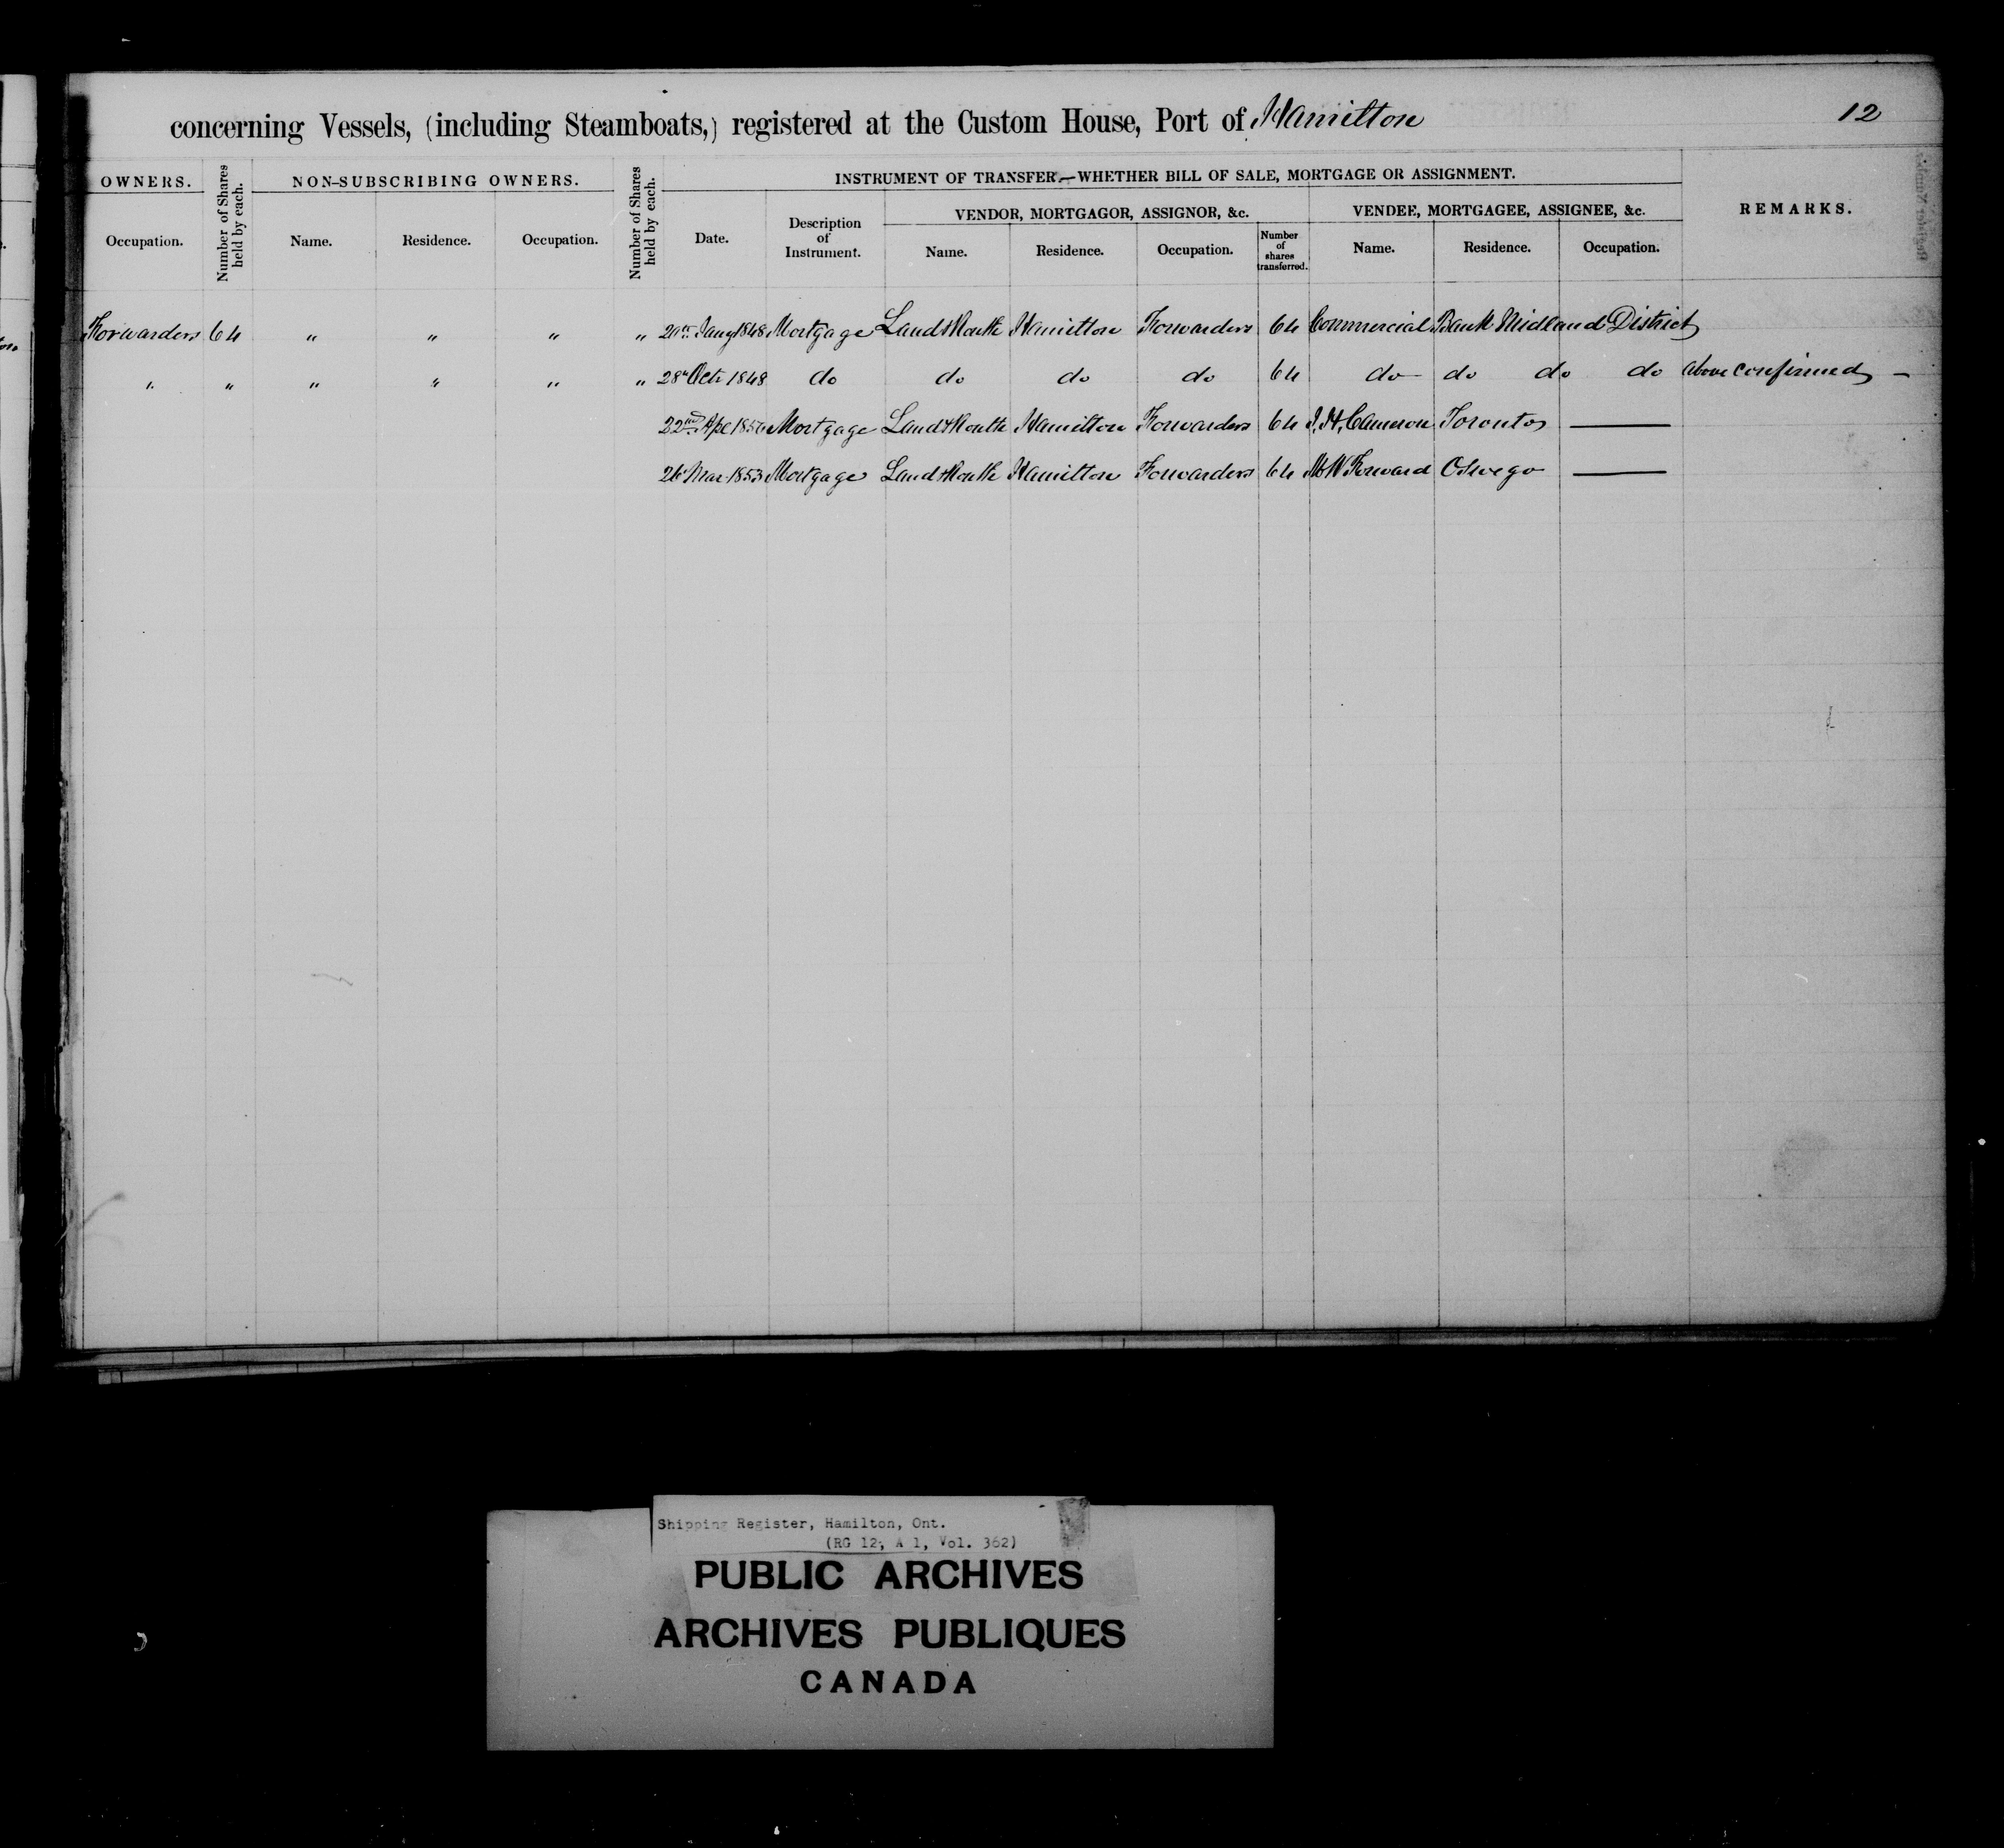 concerning Vessels, (including Steamboats,) registered at the Custom House, Port of Hamilton 12
OWNERS. Number of Shares held by each. NON-SUBSCRIBING OWNERS. Number of Shares held by each. INSTRUMENT OF TRANSFER.—WHETHER BILL OF SALE, MORTGAGE OR ASSIGNMENT. REMARKS.
VENDOR, MORTGAGOR, ASSIGNOR, &c. VENDEE, MORTGAGEE, ASSIGNEE, &c.
Occupation. Name. Residence. Occupation. Date. Description of Instrument. Name. Residence. Occupation. Number of shares transferred. Name. Residence. Occupation.
Forwarders 64 " " " " Jany 1848 Mortgage Land & Routh Hamilton Forwarders 64 Commercial Bank Midland District
" " " " " " 28th Octr 1848 do do do do 64 do do do do above confirmed —
22nd Apl 1850 Mortgage Land & Routh Hamilton Forwarders 64 J. H. Cameron Toronto —
26 Mar 1853 Mortgage Land & Routh Hamilton Forwarders 64 Forward Oswego —
Shipping Register, Hamilton, Ont.
(RG 12, A 1, Vol. 362)
PUBLIC ARCHIVES
ARCHIVES PUBLIQUES
CANADA